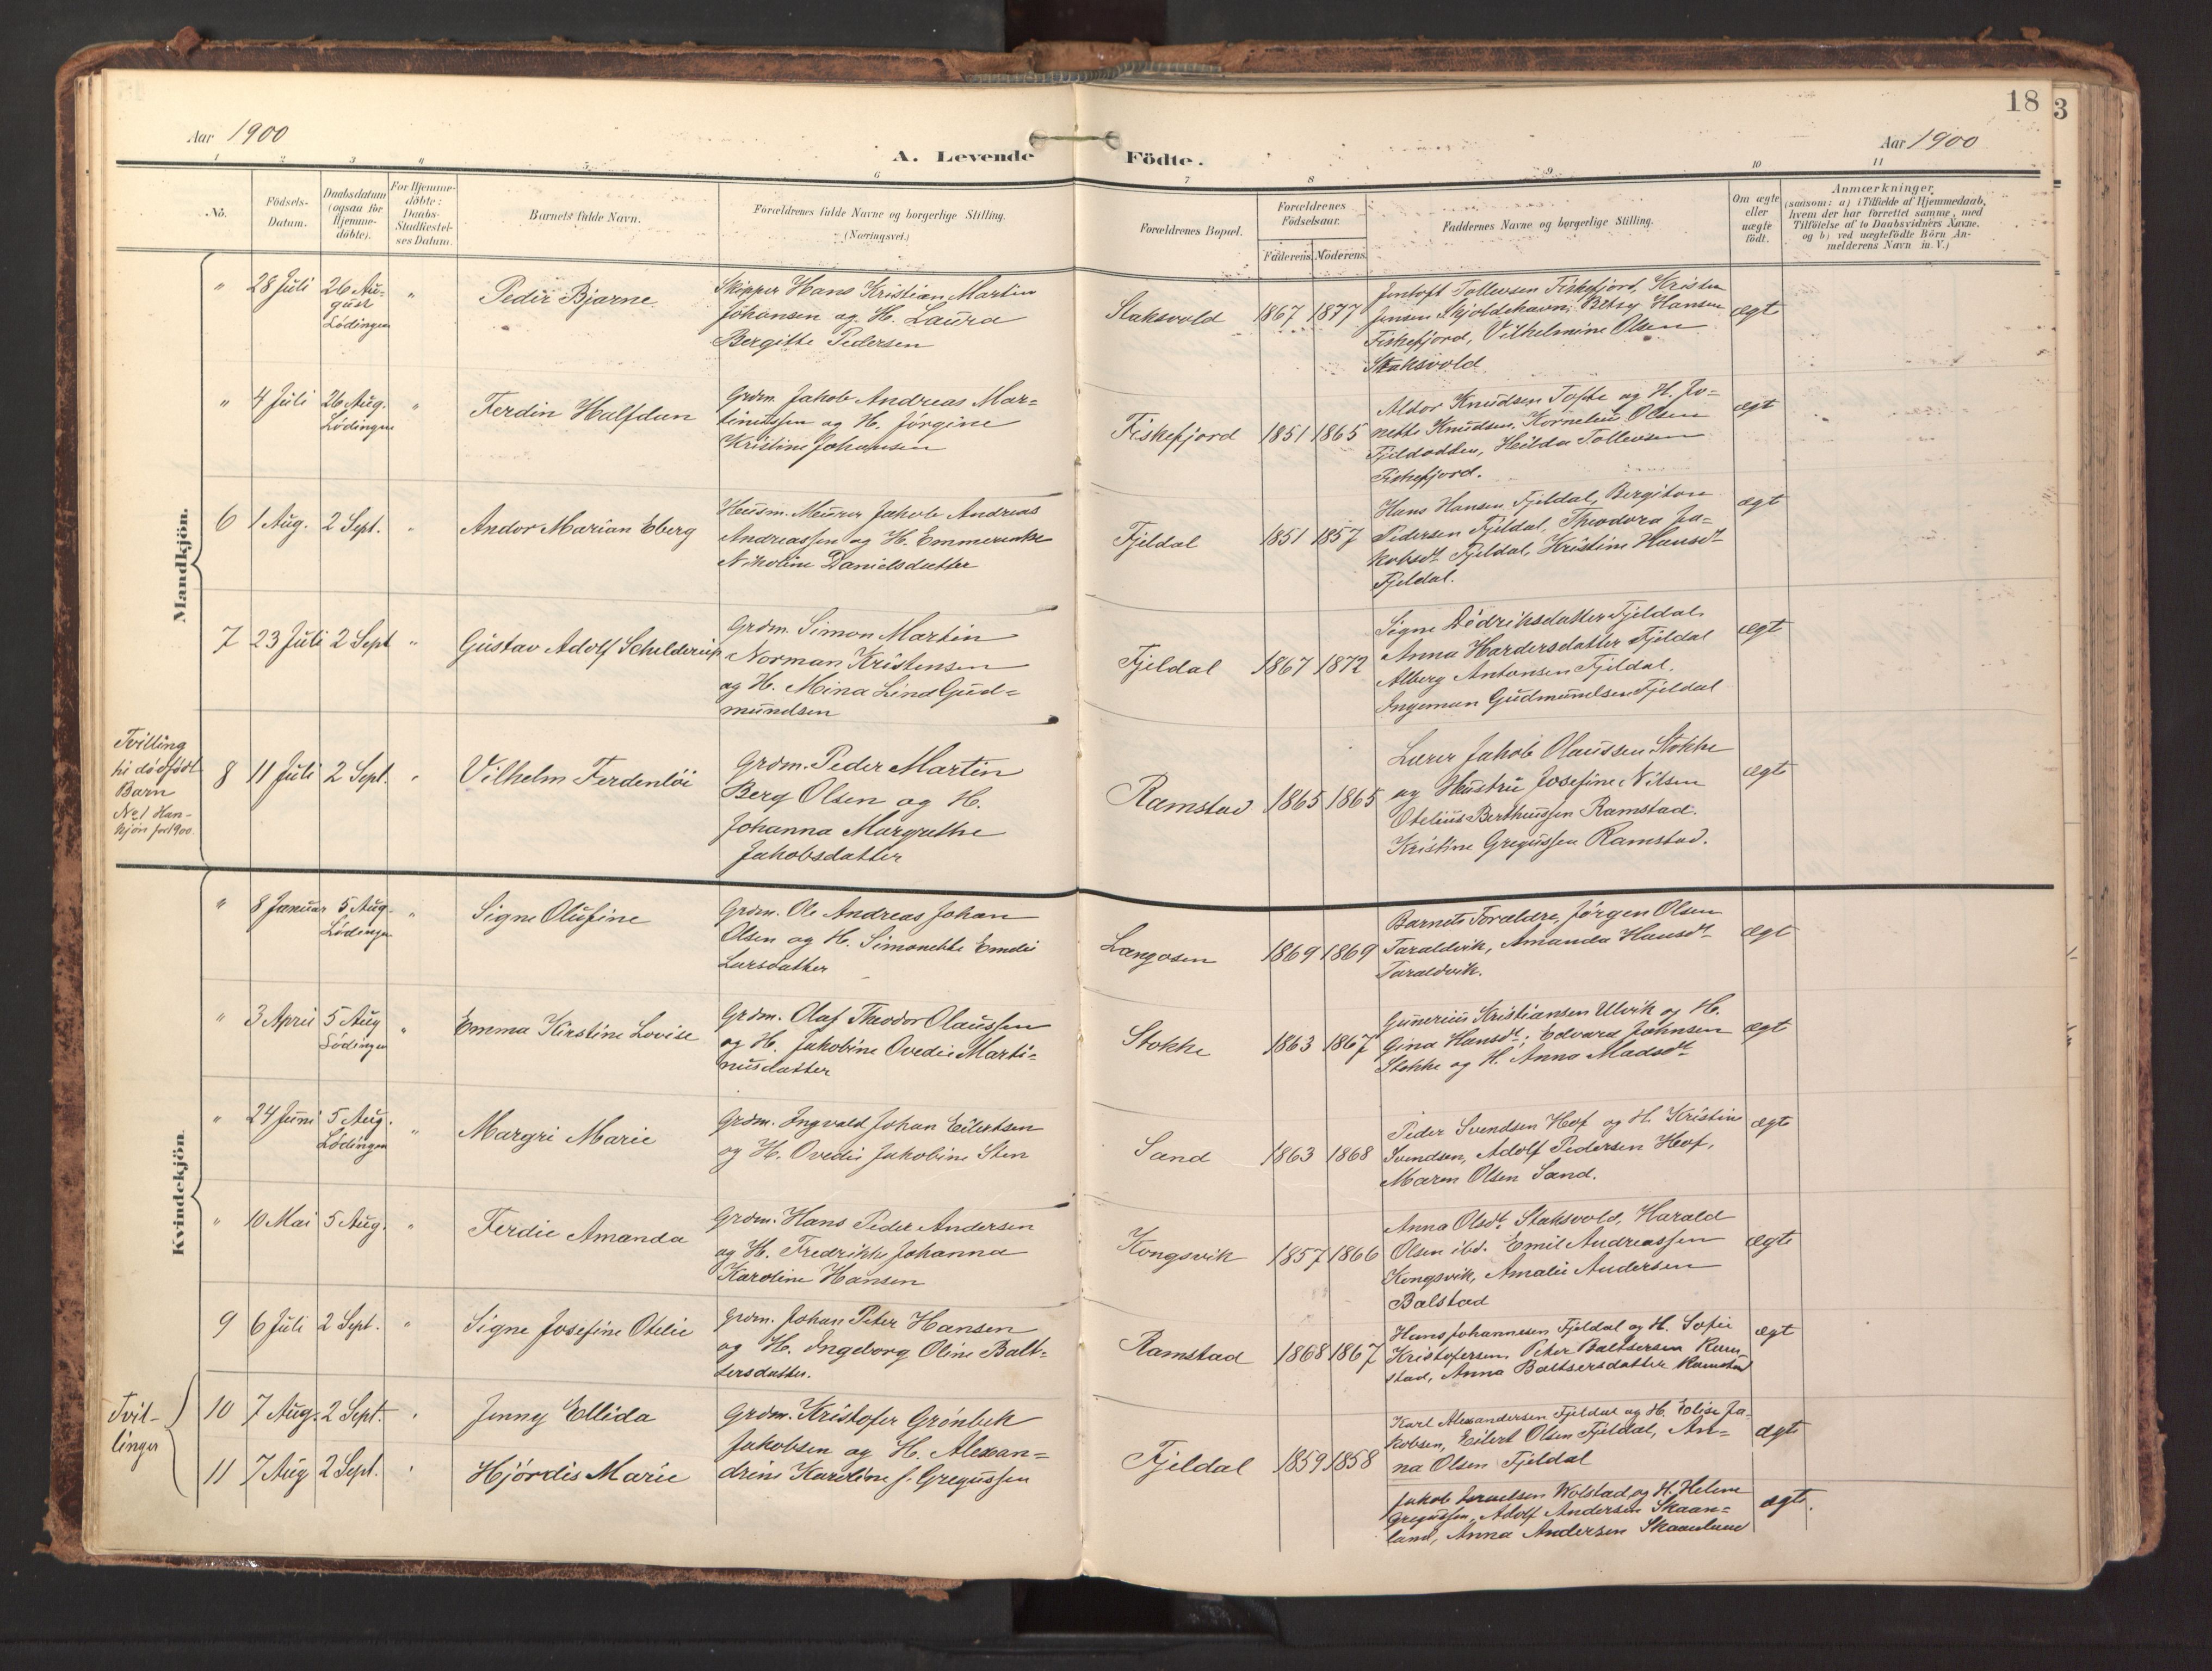 18
3
Aar 1900
A. Levende Födte.
Aar 1900
1 2 3 4 5 6 7 8 9 10 11
No.
Födsels-
Datum.
Daabsdatum
(ogsaa for
Hjemme-
döbte).
For Hjemme-
döbte:
Daabs-
Stadfæstel-
ses Datum.
Barnets fulde Navn.
Forældrenes fulde Navne og borgerlige Stilling.
(Næringsvei.)
Forældrenes Bopæl.
Forældrenes
Födselsaar.
Faderens. Moderens.
Faddernes Navne og borgerlige Stilling.
Om ægte
eller
uægte
födt.
Anmærkninger
(saasom: a) i Tilfælde af Hjemmedaab,
hvem der har forrettet samme, med
Tilföielse af to Daabsvidners Navne.
og b) ved uægtefödte Börn An-
melderens Navn m. V.)
Mandkjön.
" 28 Juli 26 Au-
gust
Lödingen " Peder Bjarne
Skipper Hans Kristian Martin
Johansen og H. Laura
Bergitte Pedersen
Staksvold 1867 1877
Jentoft Tollevsen Fiskefjord, Kristen
Jensen Skjoldehavn, Betsy Hansen
Fiskefjord, Vilhelmine Olsen
Staksvold
ægt
" 4 Juli 26 Aug.
Lödingen " Ferdin Halfdan
Grdm. Jakob Andreas Mar-
tinussen og H. Jörgine
Kristine Johansen
Fiskefjord 1851 1865
Aldor Knudsen Tofte og H. Jo-
nette Knudsen, Kornelius Olsen
Fjeldodden, Hilda Tollevsen
Fiskefjord.
ægt
6 1 Aug. 2 Sept. " Andor Marian Eberg
Husm. Murer Jakob Andreas
Andreassen og H. Emmerenke
Nikoline Danielsdatter
Fjeldal 1851 1857
Hans Hansen Fjeldal, Bergiton
Pedersen Fjeldal, Theodora Ja-
kobsdt Fjeldal, Kristine Hansdt
Fjeldal.
ægt
7 23 Juli 2 Sept " Gustav Adolf Schelderup
Grdm. Simon Martin
Norman Kristensen
og H. Mina Lind Gud-
mundsen
Fjeldal 1867 1872
Signe Dedriksdatter Fjeldal
Anna Hardersdatter Fjeldal
Alberg Antonsen Fjeldal.
Ingeman Gudmundsen Fjeldal
ægt
Tvilling
til dødfødt
Barn
No 1 Han-
kjön for 1900.
8 11 Juli 2 Sept. " Vilhelm Ferdenlöi
Grdm. Peder Martin
Berg Olsen og H.
Johanna Margrethe
Jakobsdatter
Ramstad 1865 1865
Lærer Jakob Olaussen Stokke
og Hustru Josefine Nilsen
Otelius Bertheussen Ramstad.
Kristine Gregussen Ramstad.
ægte
Kvindekjön.
" 8 Januar 5 Aug.
Lödingen " Signe Olufine
Grdm. Ole Andreas Johan
Olsen og H. Simonette Emelie
Larsdatter
Langosen 1869 1869
Barnets Forældre, Jörgen Olsen
Taraldvik, Amanda Hansdt
Taraldvik.
ægt
" 3 April 5 Aug
Lödingen " Emma Kirstine Lovise
Grdm. Olaf Theodor Olaussen
og H. Jakobine Ovedie Marti-
nusdatter
Stokke 1863 1867
Gunerius Kristiansen Ulvik og H.
Gina Hansdt; Edvard Johnsen
Stokke og H. Anna Madsdt
ægt
" 24 Juni 5 Aug.
Lödingen " Margri Marie
Grdm. Ingvald Johan Eilertsen
og H. Ovedie Jakobine Sten
Sand 1863 1868
Peder Svendsen Hof og H. Kristin
Svendsen, Adolf Pedersen Hof,
Maren Olsen Sand.
ægte
" 10 Mai 5 Aug. " Ferdie Amanda
Grdm. Hans Peder Andersen
og H. Fredrikke Johanna
Karoline Hansen
Kongsvik 1857 1866
Anna Olsdt. Staksvold, Harald
Olsen ibd. Emil Andreassen
Kongsvik, Amalie Andersen
Balstad
ægte
9 6 Juli 2 Sept. " Signe Josefine Otelie
Grdm. Johan Peter Hansen
og H. Ingeborg Oline Balt-
sersdatter.
Ramstad 1868 1867
Hans Johannesen Fjeldal og H. Sofie
Kristofersen, Peter Baltsersen Ram-
stad, Anna Baltsersdatter Ramstad
ægt
Tvil-
linger
10 7 Aug. 2 Sept. " Jenny Ellida
11 7 Aug 2 Sept. " Hjördis Marie
Grdm. Kristofer Grönbek
Jakobsen og H. Alexan-
drine Karoline f. Gregussen
Fjeldal 1859 1858
Karl Alexandersen Fjeldal og H. Elise Ja-
kobsen, Eilert Olsen Fjeldal, An-
na Olsen Fjeldal
ægte
Jakob Israelsen Wolstad og H. Helene
Gregussen, Adolf Andersen Skaan-
land, Anna Andersen Skaanland
ægte.